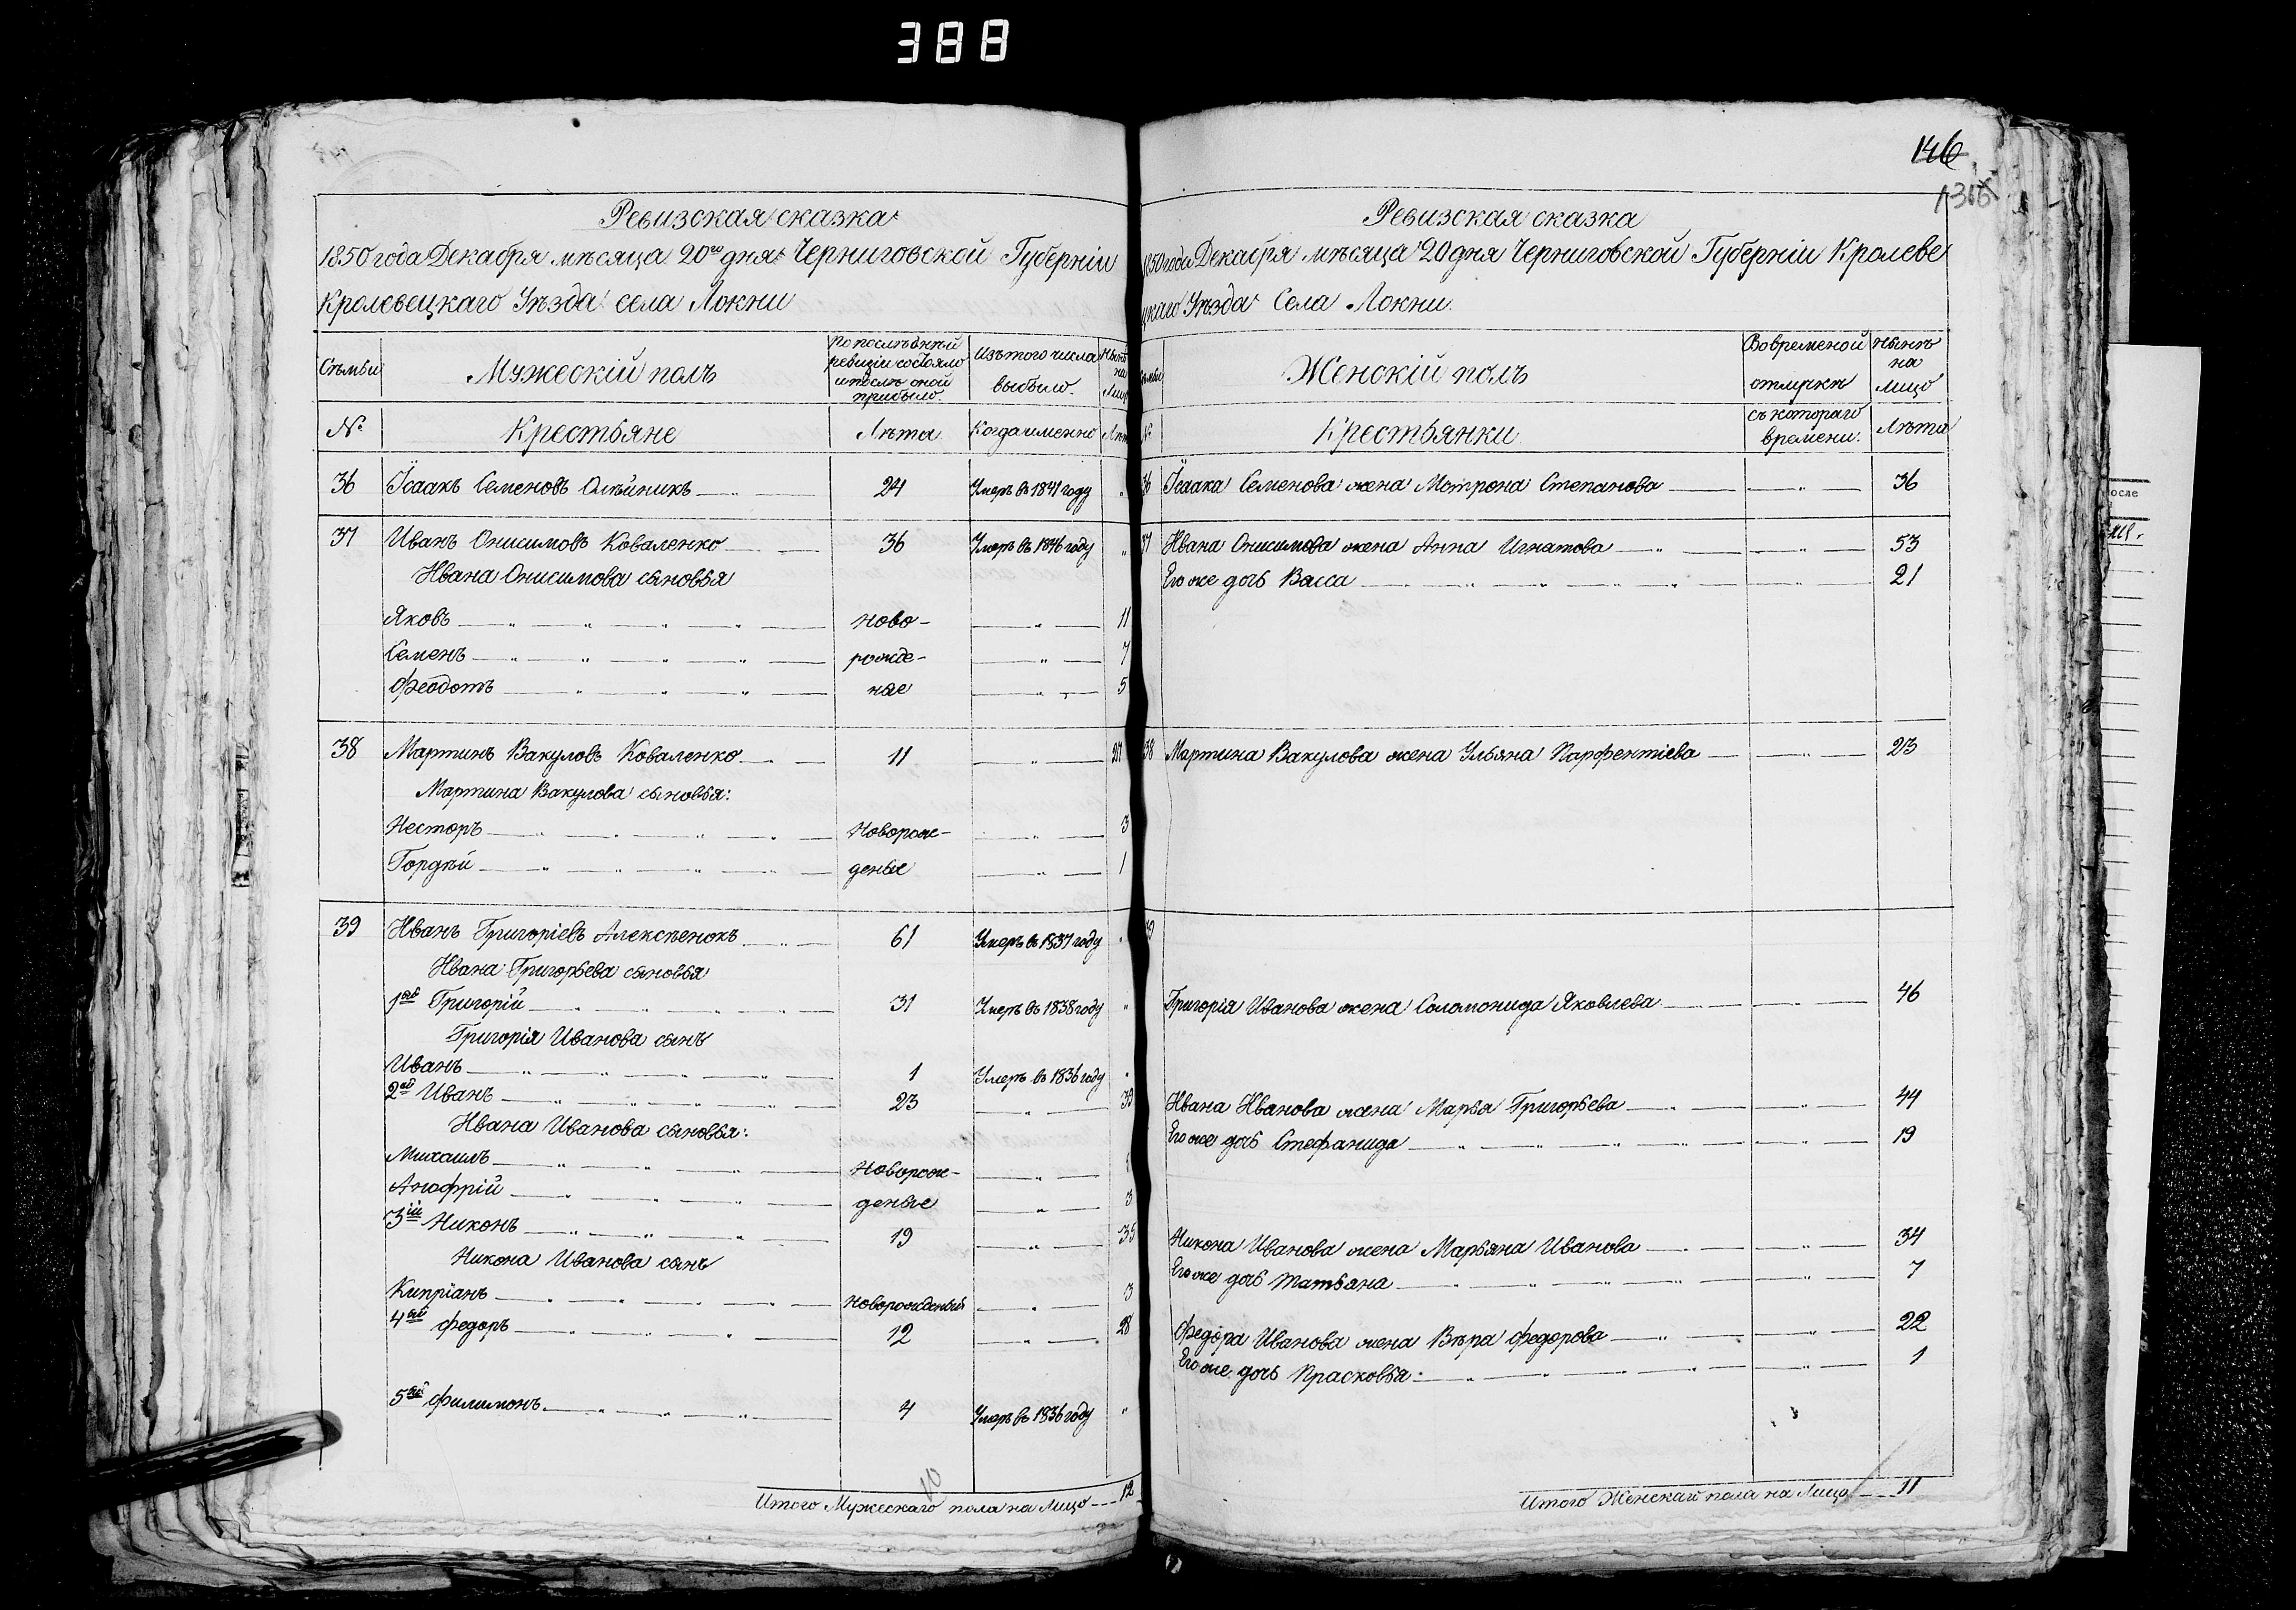 388
146
1315
Ревизская сказка
1850 года Декабря мѣсяца 20го дня Черниговской Губерніи
Кролевецкаго Уѣзда села Локни
Сѣмьи
Мужескій полъ
По послѣдней ревизіи состояло и послѣ оной прибыло.
Изъ того числа выбыло.
Нынѣ на Лицо
№
Крестьяне
Лѣта
Когда именно
Лѣта
36 Ісаакъ Семеновъ Олѣйникъ 24 Умеръ въ 1841 году "
37 Иванъ Онисимовъ Коваленко 36 Умеръ въ 1846 году "
Ивана Онисимова сыновья
Яковъ ново- 11
Семенъ рожде- 7
Феодотъ ные 5
38 Мартинъ Вакуловъ Коваленко 11 27
Мартина Вакулова сыновья:
Несторъ Новорож- 3
Гордѣй деные 1
39 Иванъ Григоріевъ Алексѣенокъ 61 Умеръ въ 1837 году "
Ивана Григорьева сыновья
1ый Григорій 31 Умеръ въ 1838 году "
Григорія Иванова сынъ
Иванъ 1 Умеръ въ 1836 году "
2ой Иванъ 23 39
Ивана Иванова сыновья:
Михаилъ Новорож-
Анофрій деные 3
3ій Никонъ 19 35
Никона Иванова сынъ
Кипріанъ Новорожденый 3
4ый Федоръ 12 28
5ый Филимонъ 4 Умеръ въ 1836 году "
10
Итого Мужескаго пола на Лицо 12
Ревизская сказка
1850 года Декабря мѣсяца 20 дня Черниговской Губерніи Кролеве
цкаго Уѣзда Села Локни.
Сѣмьи
Женскій полъ
Во временой отлучкѣ
Нынѣ на лицо
№
Крестьянки
съ котораго времени.
Лѣта
36 Ісаака Семенова жена Мотрона Степанова 36
37 Ивана Онисимова жена Анна Игнатова 53
Его же дочь Васса 21
38 Мартина Вакулова жена Ульяна Парфентіева 23
39
Григорія Иванова жена Соломонида Яковлева 46
Ивана Иванова жена Марья Григорьева 44
Его же дочь Стефанида 19
Никона Иванова жена Марьяна Иванова 34
Его же дочь Татьяна 7
Федора Иванова жена Вѣра Федорова 22
Его же дочь Прасковья 1
Итого Женскаго пола на Лицо 11
осле